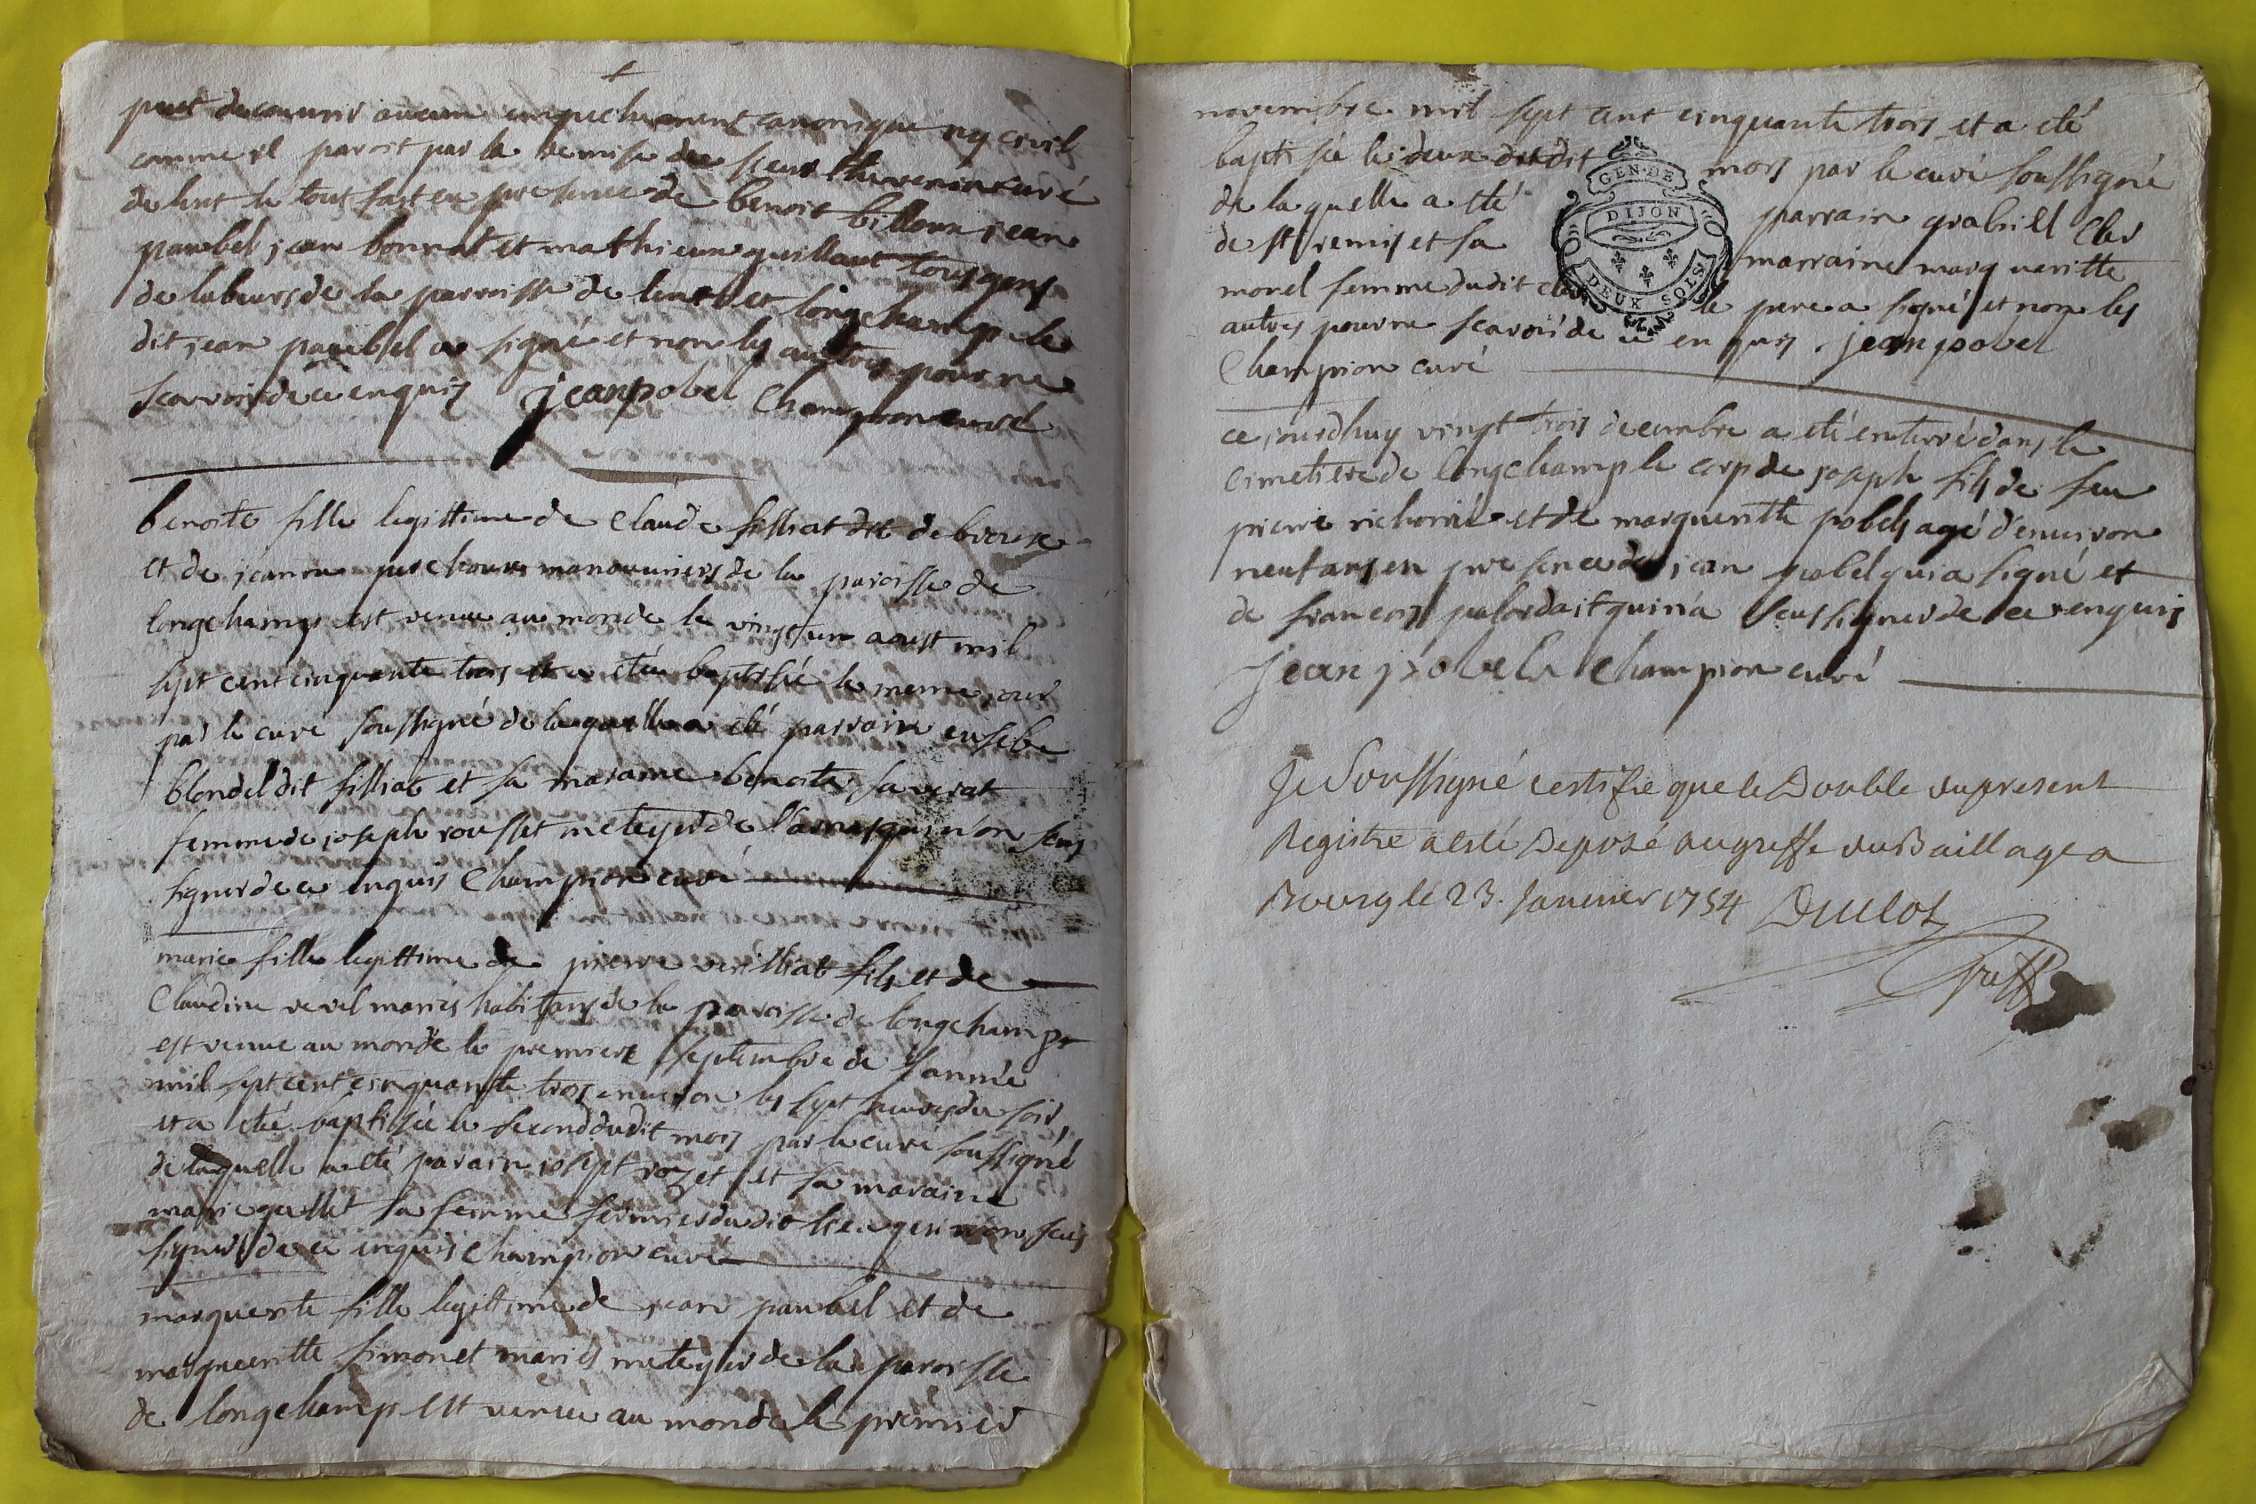 decouvrir aucun empechement canonique ny civil
comme il paroit par la remise de sieur curé
de lent le tout fait en presence de benoit billoux jean
paubel jean bonnet et mathieu guillaut tous gens
de labeurs de la parroisse de lent et longchamp le
dit jean paubel a signé et non les autres pour ne
scavoir de ce enquis jean pobel Champion curé
benoite fille legittime de Claude filliat dit de
et de jeanne manouvriers de la paroisse de
longchamp est venue au monde le vingt un aoust mil
sept cent cinquante trois et a été baptisée le meme jour
par le curé soussigné de laquelle a été parrain eusebe
blondel dit filliat et sa maraine benoite
femme de joseph rousset meteyer de qui n'on seus
signer de ce enquis Champion curé
marie fille legittime de pierre verilliat fils et de
Claudine revel mariés habitans de la paroisse de longchamp
est venue au monde le premier septembre de l'année
mil sept cent cinquante trois environ les sept heures du soir
et a été baptisée le second dudit mois par le curé soussigné
de laquelle a été parain josept rozet et sa maraine
marie sa femme fermiers dudit lieu qui n'on seus
signer de ce enquis Champion curé
marguerite fille legittime de jean paubel et de
margueritte simonet mariés meteyer de la paroisse
de longchamp est venue au monde le premier
novembre mil sept cent cinquante trois et a eté
baptisée le deux dudit mois par le curé soussigné
de la quelle a eté parrain grabriel Cler
de st remis et sa marraine margueritte
morel femme dudit cler le pere a signé et non les
autres pour ne scavoir de ce enquis. jean pobel
Champion curé
GEN. DE
DIJON
DEUX SOLS
ce jourdhuy vingt trois decembre a eté enterré dans le
cimetiere de longchamp le corp de joseph fils de feu
pierre et de margueritte pobel agé d'environ
neuf ans en presence de jean pobel qui a signé et
de francois qui n'a seus signer de ce enquis
jean pobel Champion curé
Je Soussigné certifie que le Double du present
Registre a esté Deposé au greffe du Baillage a
Bourg le 23. Janvier 1754 Duclot
Greff